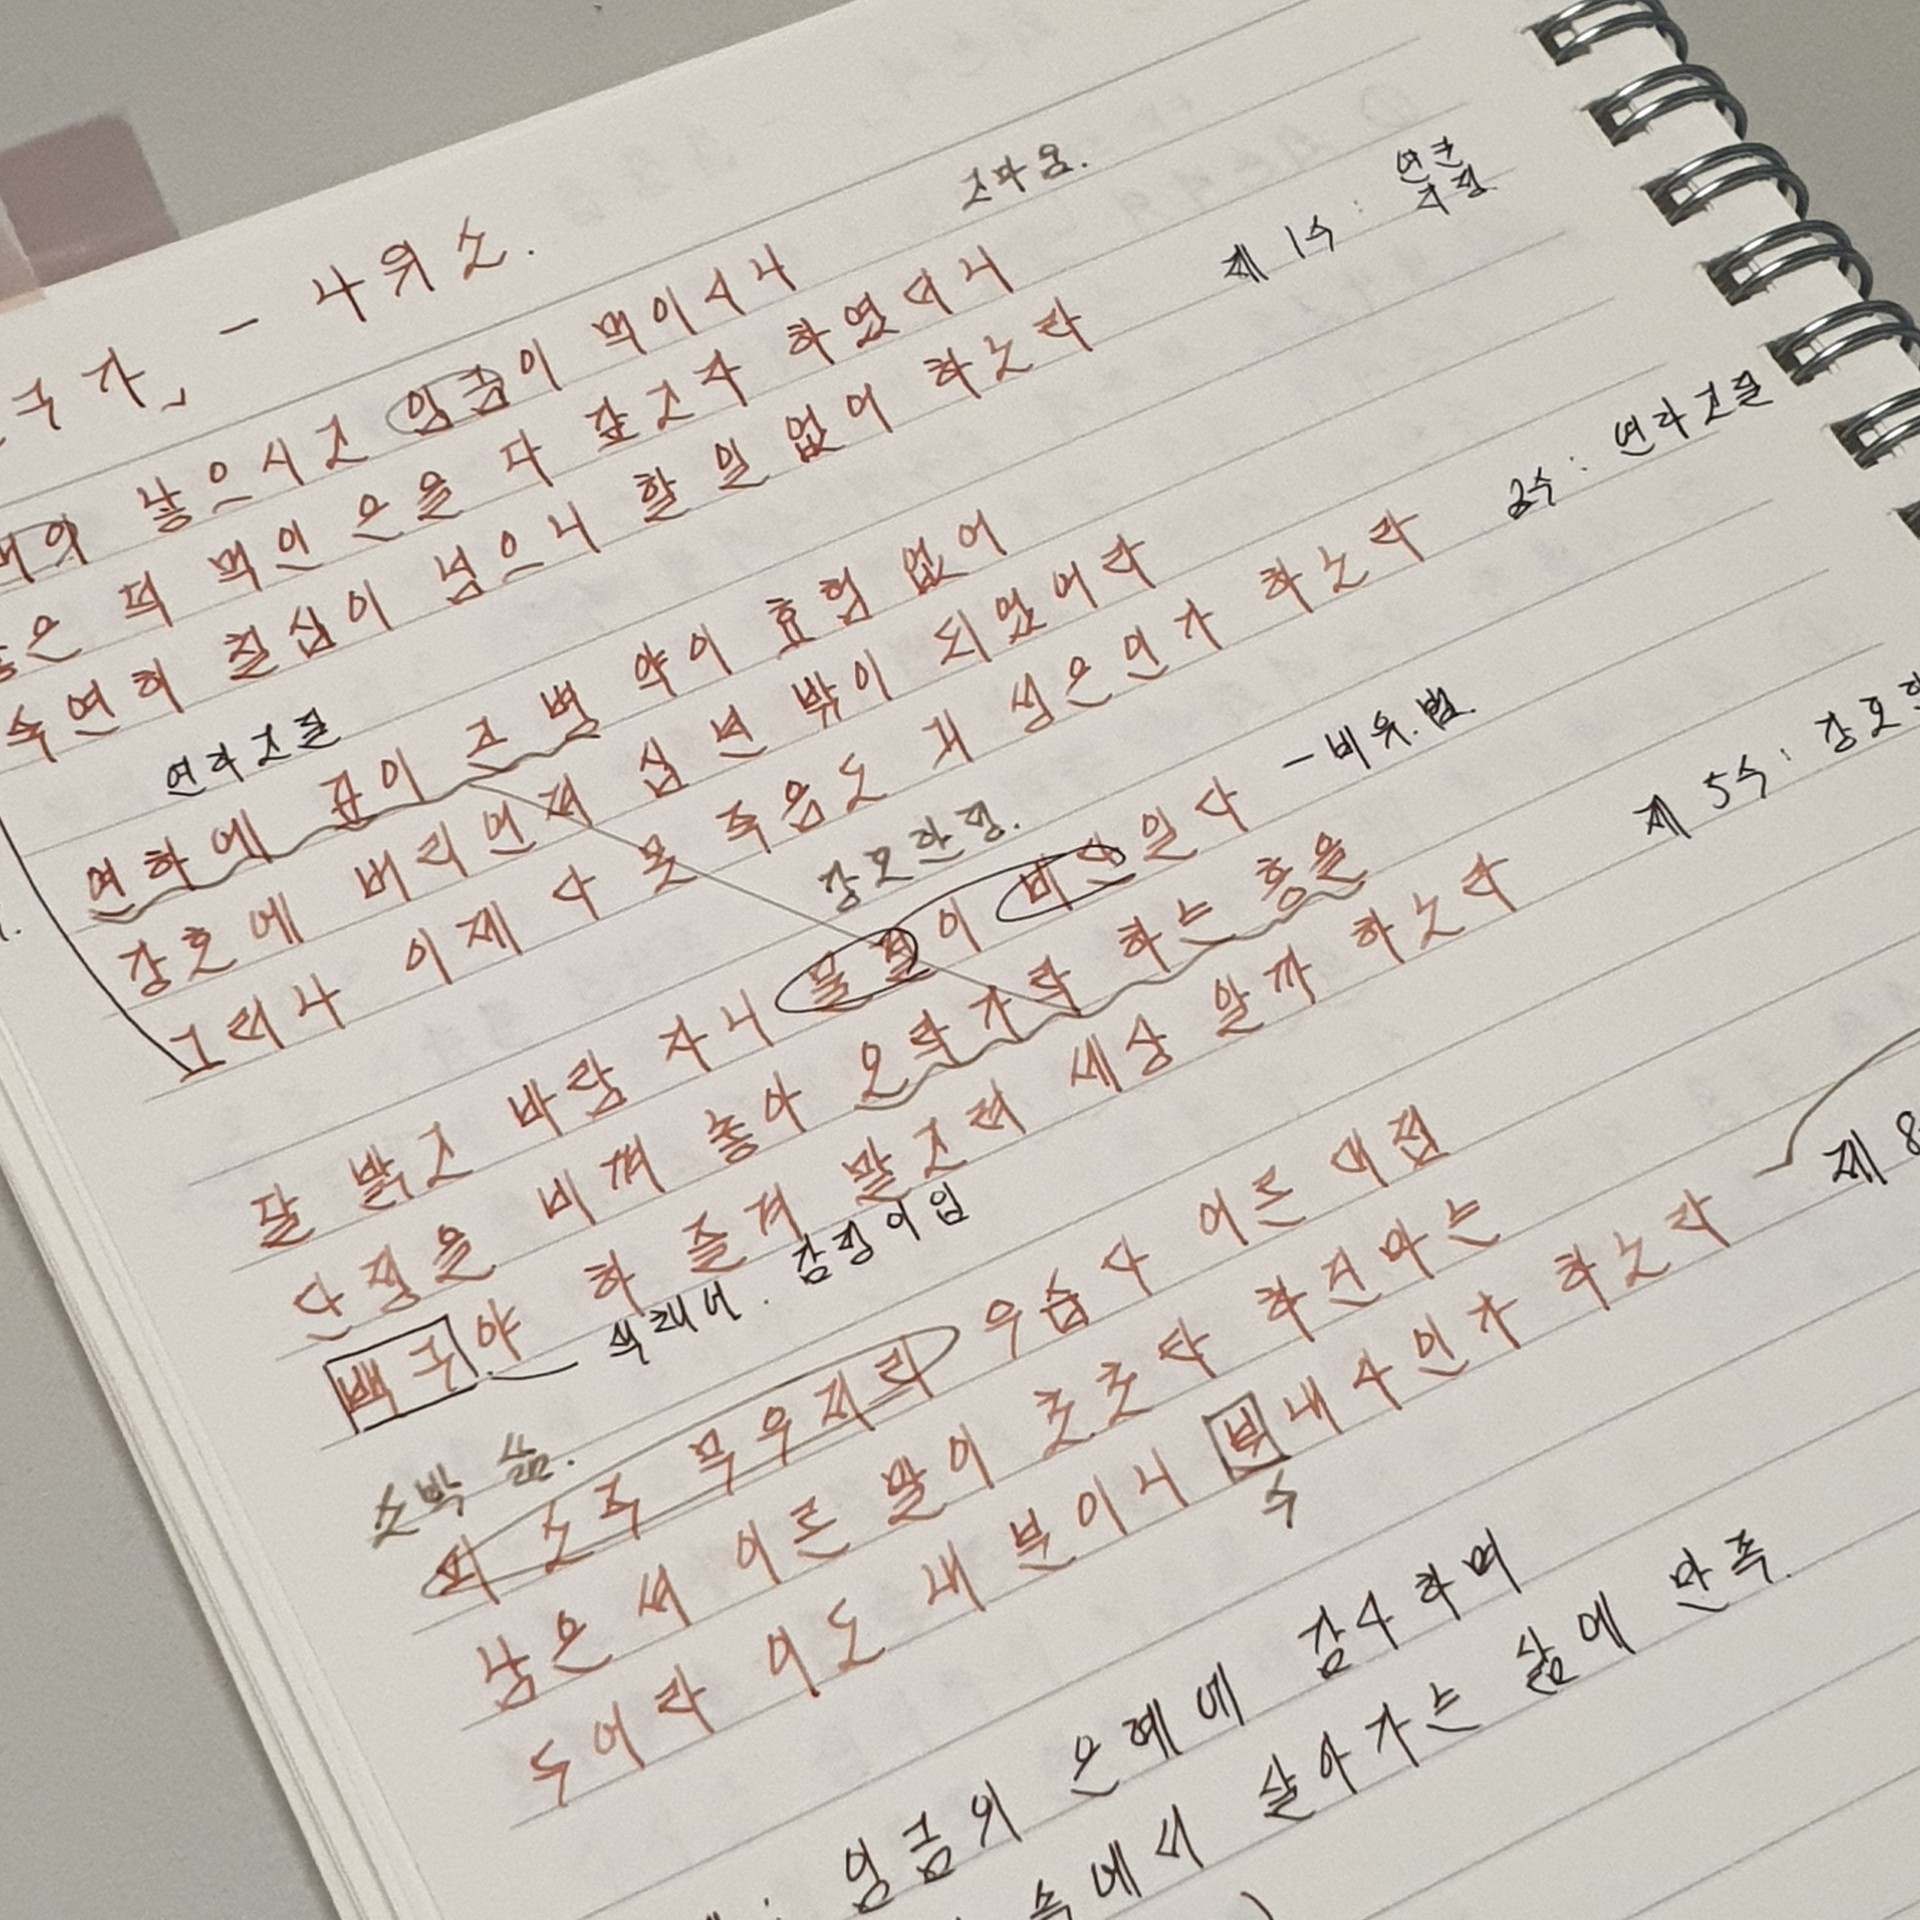 구가」 - 나위소.
고마움.
낳으시고 임금이 먹이시니
제 1수 : 연군지정
은 덕 먹인 은을 다 갚고자 하였더니
숙연히 칠십이 넘으니 할 일 없어 하노라
연하고질
연하에 깊이 든 병 약이 효험 없어
2수 : 연하고질
강호에 버리언제 십 년 밖이 되었어라
그러나 이제 다 못 죽음도 긔 성은인가 하노라
강호한정.
달 밝고 바람 자니 물결이 비단일다
- 비유.법.
단정을 비껴 놓아 오락가락 하는 흥을
제 5수 : 강호한
백구야 하 즐겨 말고려 세상 알까 하노라
색채어. 감정이입
소박 삶.
피 소주 무우저리 우습다 어른 대접
남은 셔 이른 말이 초초타 하건마는
두어라 이도 내 분이니 분내사인가 하노라
제 8
수
임금의 은혜에 감사하며
속에서 살아가는 삶에 만족.